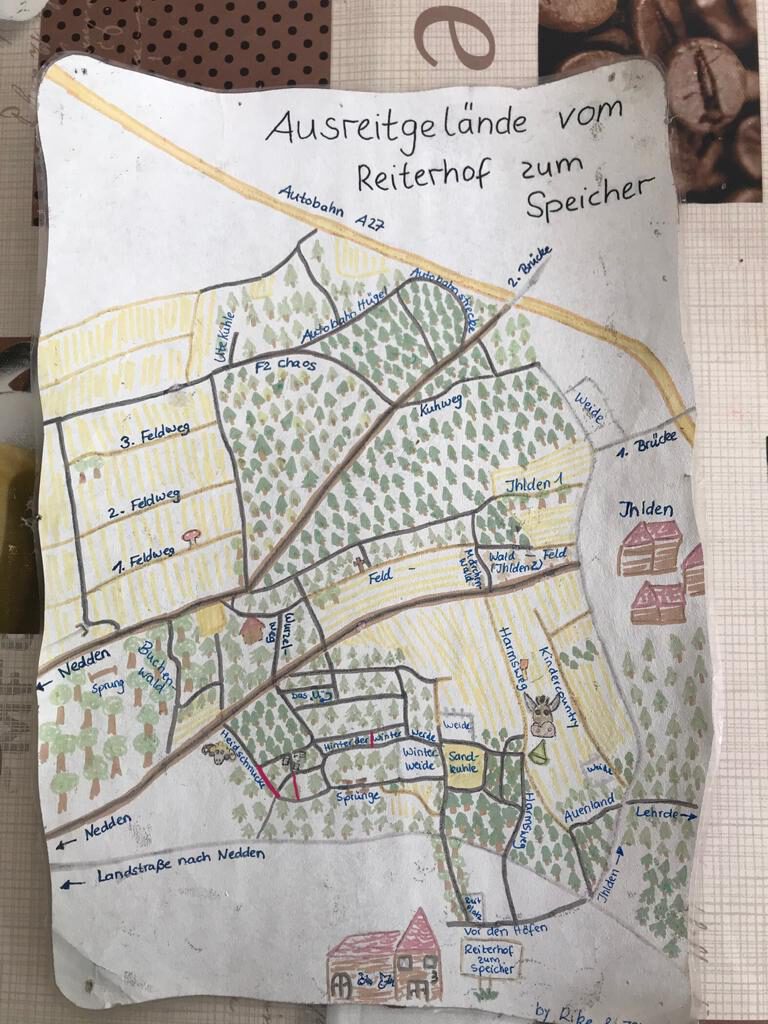 e
Ausreitgelände vom
Reiterhof zum
Speicher
Autobahn A27
2. Brücke
Autobahnstrecke
Autobahn Hügel
Ute Kuhle
F2 Chaos
Kuhweg
Weide
1. Brücke
3. Feldweg
2. Feldweg
1. Feldweg
Jhlden 1
Jhlden
Märchen
Wald
Wald - Feld
(Jhlden 2)
Feld -
Wurzel-
weg
Buchen-
wald
Nedden
Sprung
Harmsweg
Kindercountry
das U
Heidschnucke
Hinter der Winter Weide
Weide
Winter
weide
Sand-
kuhle
Weide
Sprünge
Harmsweg
Auenland
Lehrde
Nedden
Landstraße nach Nedden
Jhlden
Reit
platz
Vor den Höfen
Reiterhof
zum
Speicher
3
by Rike &